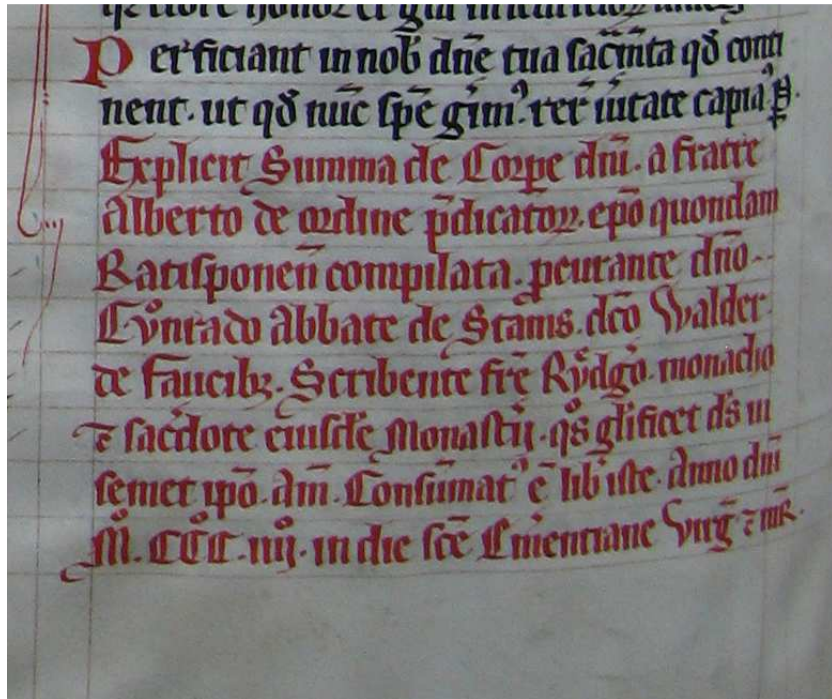 Perficiant in nob̄ dn̄e tua sac̄mta qd̄ conti
nent. ut qd̄ nūc spē gerim᷒. rer̄ ūitate capiam᷒. P̲.
Explicit Summa de Corꝑe dn̄i. a fratre
Alberto de ordine p̄dicatoꝝ. ep̄o quondam
Ratisponen̄ compilata. ꝓcurante dn̄o..
Cvͦnrado Abbate de Stams. dc̄o Walder
de Faucibꝫ. Scribente frē Rvͦdgͦ. monacho
⁊ sac̄dote eiusdē Monastīj. qͦs gl̄ificet d̄s in
semet ip̄o. am̄. Consūmat᷒ ē lib̄ iste. Anno dn̄i
M̊. CCC̊. iiij̊. in die sc̄e Em̄entiane Virḡ ⁊ mR̄.